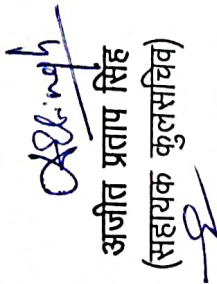 अजीत प्रताप सिंह
(सहायक कुलसचिव)